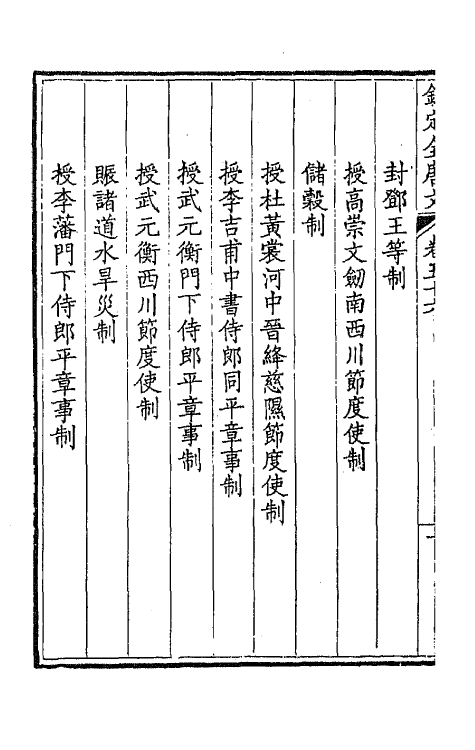 欽定全唐文 卷五十六
封鄧王等制
授高崇文劒南西川節度使制
儲糓制
授杜黃裳河中晉絳慈隰節度使制
授李吉甫中書侍郎同平章事制
授武元衡門下侍郎平章事制
授武元衡西川節度使制
賑諸道水旱災制
授李藩門下侍郎平章事制